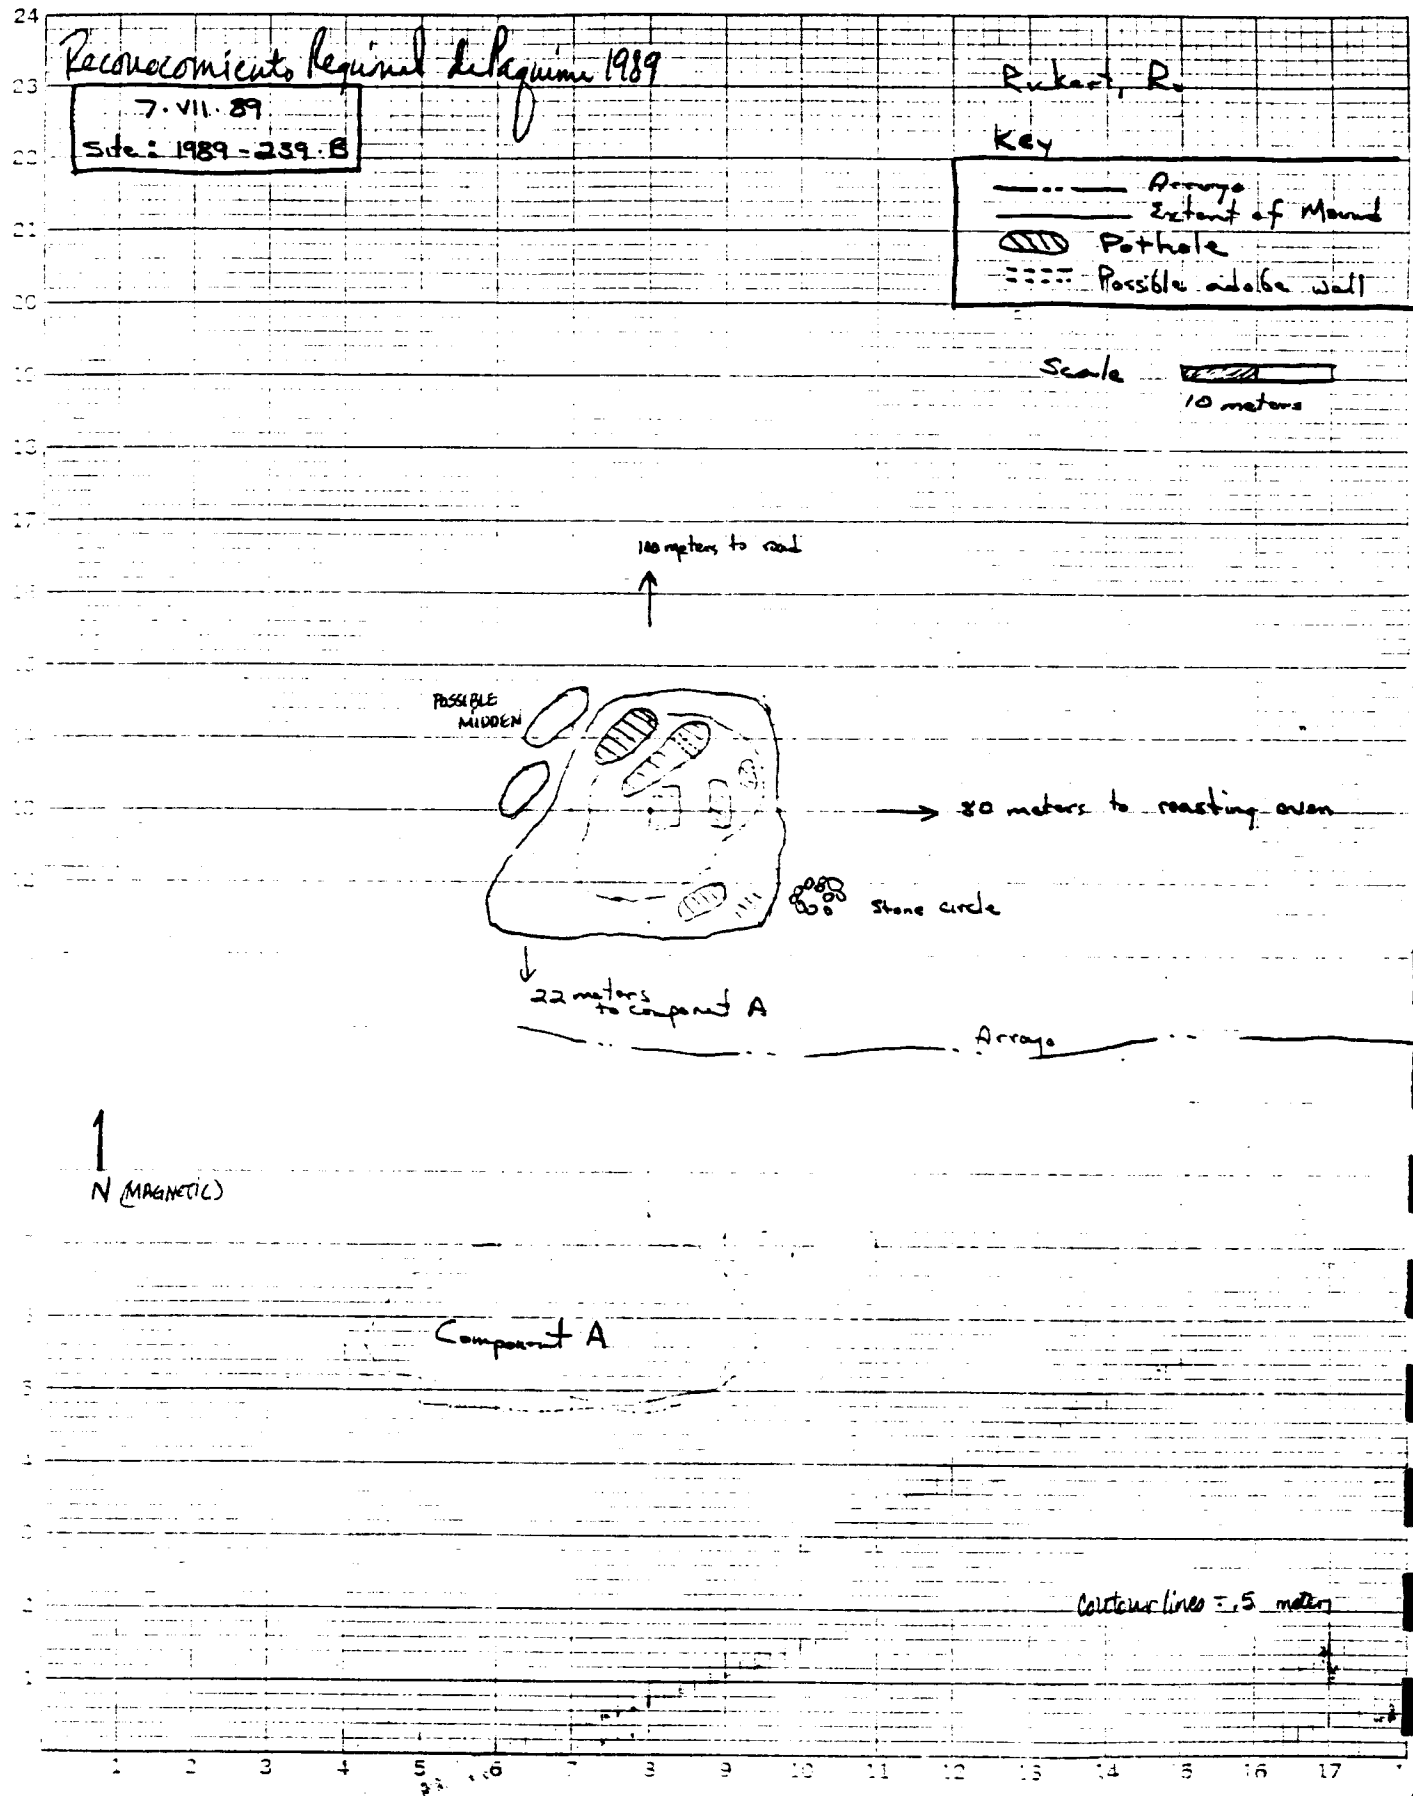 Reconocomiento Regional de Paquime 1989
7.VII.89
Site: 1989-239.B
Rickert, R.
Key
Arroyo
Extent of Mound
Pothole
Possible adobe wall
Scale
10 meters
100 meters to road
POSSIBLE
MIDDEN
80 meters to roasting oven
Stone circle
22 meters
to component A
Arroyo
N (MAGNETIC)
Component A
Contour lines = .5 meter
24
23
22
21
20
19
18
17
1 2 3 4 5 6 7 8 9 10 11 12 13 14 15 16 17